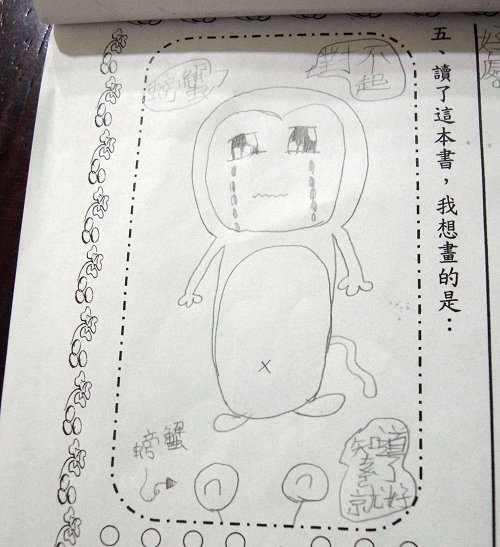 好處。
五、讀了這本書，我想畫的是：
對不
起
螃蟹
螃蟹
知道
了
就好